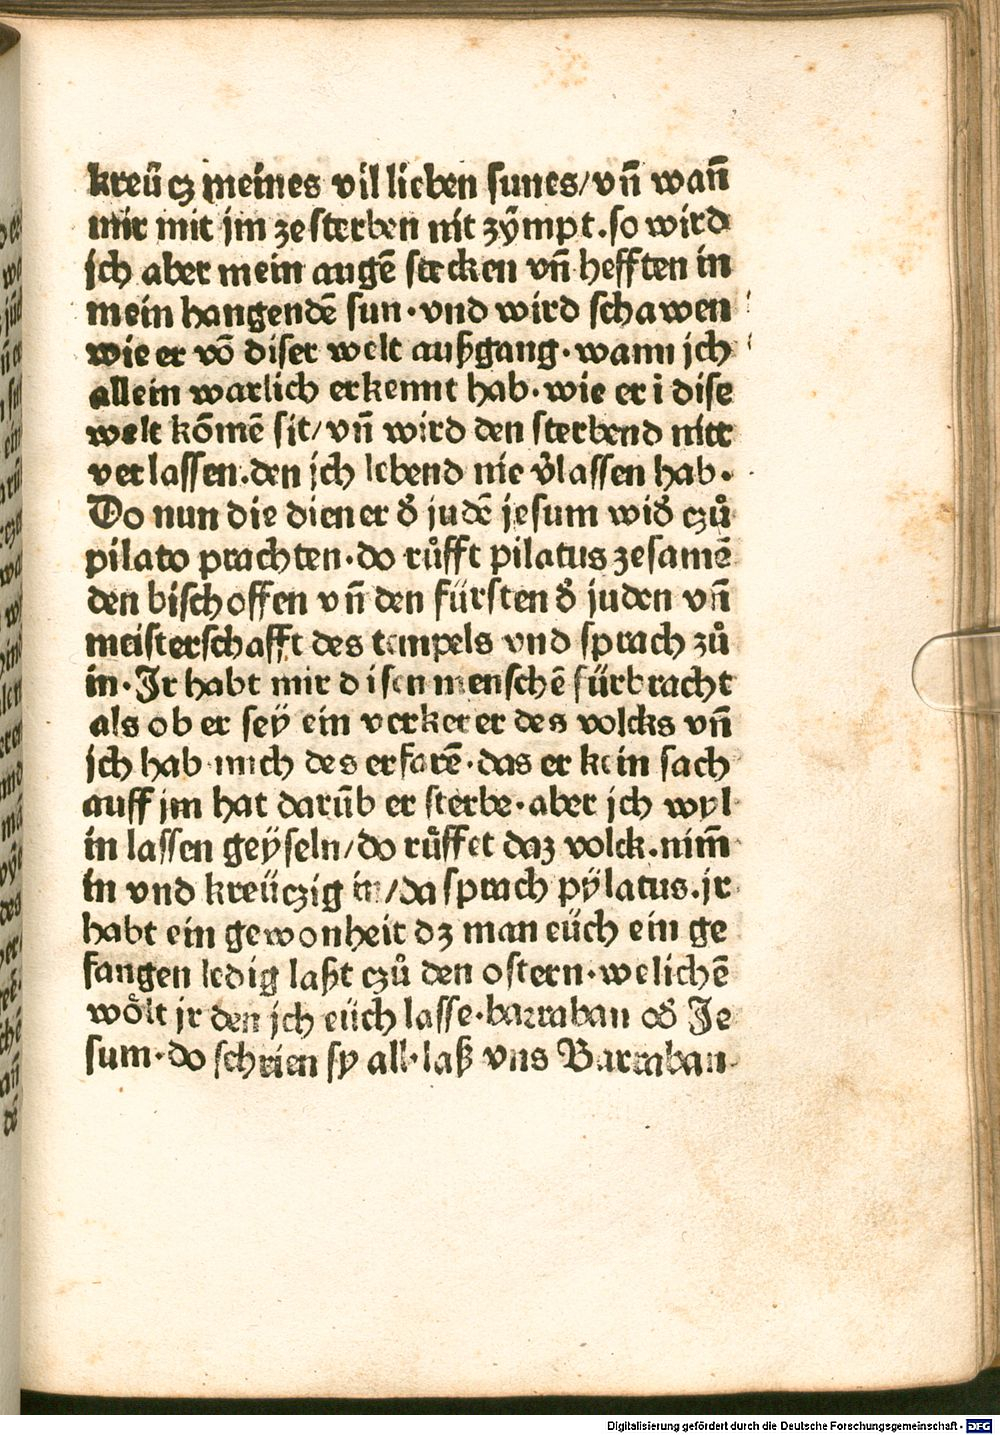 kreücz meines vil lieben sunes/vñ wañ
mir mit jm ze sterben nit zÿmpt. so wird
jch aber mein augē stecken vñ hefften in
mein hangendē sun· vnd wird schawen
wie er vō diser welt außgang· wann jch
allein warlich erkennt hab· wie er i dise
welt kōmē sit/ vñ wird den sterbend nitt
verlassen. den jch lebend nie v̄lassen hab·
Do nun die diener d̄ judē jesum wid̄ czů
pilato prachten· do růfft pilatus zesamē
den bischoffen vñ den fürsten d̄ juden vñ
meisterschafft des tempels vnd sprach zů
in· Jr habt mir disen menschē fürbracht
als ob er sey̋ ein verkerer des volcks vñ
jch hab mich des erfarē· das er kein sach
auff jm hat darūb er sterbe· aber jch wyl
in lassen geÿseln/ do růffet daz volck. nim̄
in vnd kreüczig in/ da sprach pÿlatus. jr
habt ein gewonheit dz man eüch ein ge
fangen ledig laßt czů den ostern· welichē
wo̊lt jr den jch eüch lasse· barraban od̄ Je
sum· do schrien sy all· laß vns Barraban·
Digitalisierung gefördert durch die Deutsche Forschungsgemeinschaft - DFG